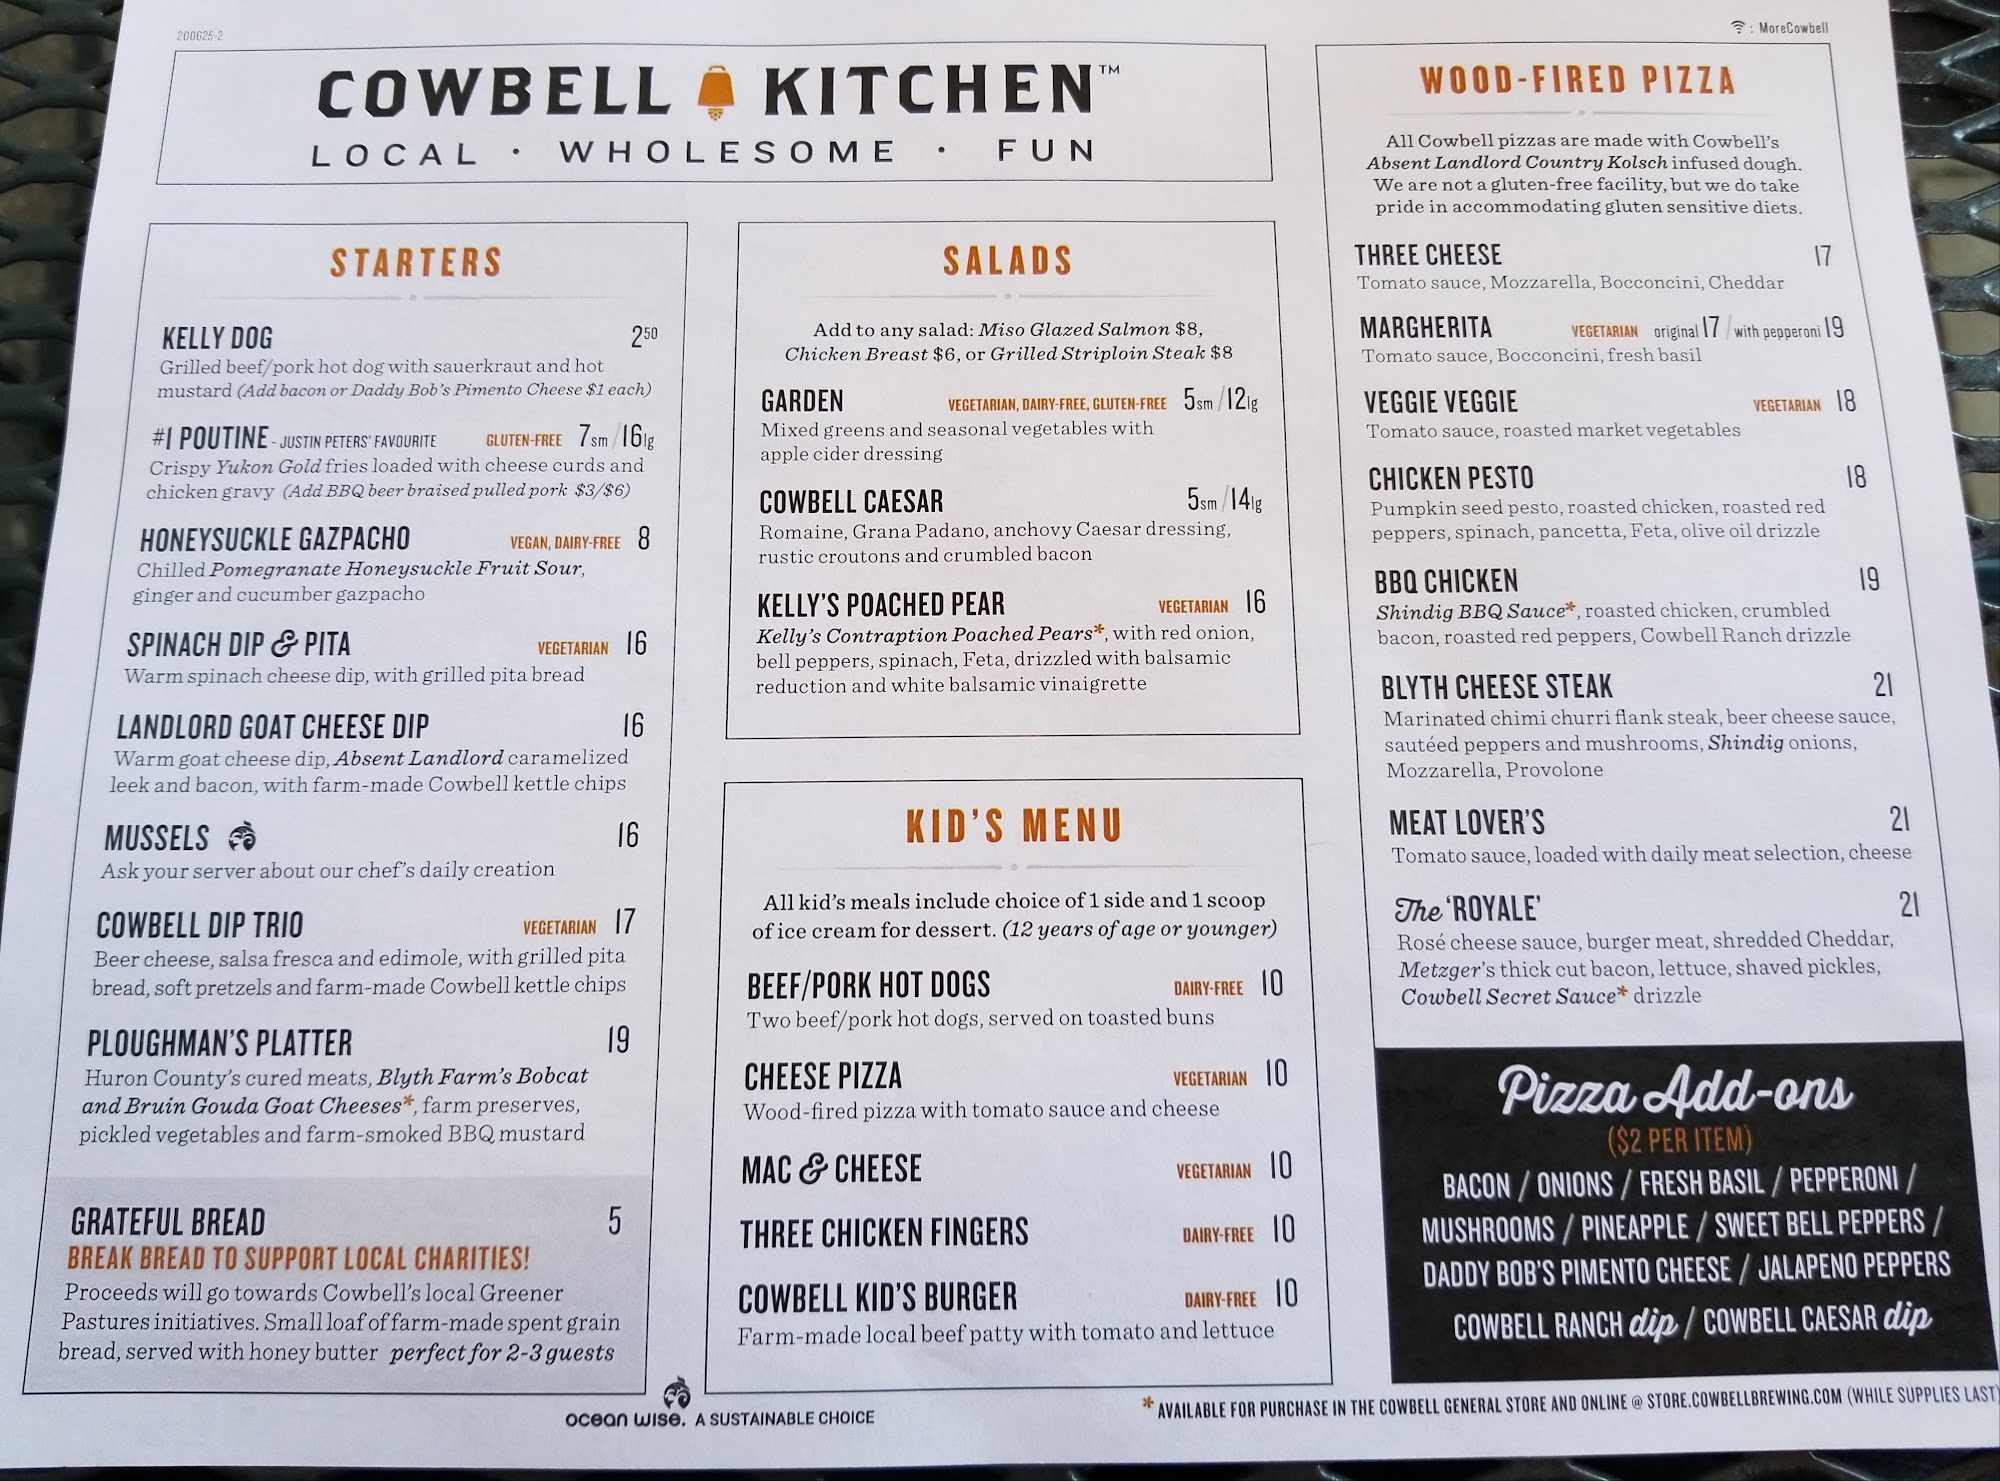 200625-2
: MoreCowbell
COWBELL KITCHEN™
LOCAL · WHOLESOME · FUN
STARTERS
KELLY DOG 2⁵⁰
Grilled beef/pork hot dog with sauerkraut and hot
mustard (Add bacon or Daddy Bob's Pimento Cheese $1 each)
#1 POUTINE - JUSTIN PETERS' FAVOURITE GLUTEN-FREE 7sm/16lg
Crispy Yukon Gold fries loaded with cheese curds and
chicken gravy (Add BBQ beer braised pulled pork $3/$6)
HONEYSUCKLE GAZPACHO VEGAN, DAIRY-FREE 8
Chilled Pomegranate Honeysuckle Fruit Sour,
ginger and cucumber gazpacho
SPINACH DIP & PITA VEGETARIAN 16
Warm spinach cheese dip, with grilled pita bread
LANDLORD GOAT CHEESE DIP 16
Warm goat cheese dip, Absent Landlord caramelized
leek and bacon, with farm-made Cowbell kettle chips
MUSSELS 16
Ask your server about our chef's daily creation
COWBELL DIP TRIO VEGETARIAN 17
Beer cheese, salsa fresca and edimole, with grilled pita
bread, soft pretzels and farm-made Cowbell kettle chips
PLOUGHMAN'S PLATTER 19
Huron County's cured meats, Blyth Farm's Bobcat
and Bruin Gouda Goat Cheeses*, farm preserves,
pickled vegetables and farm-smoked BBQ mustard
GRATEFUL BREAD 5
BREAK BREAD TO SUPPORT LOCAL CHARITIES!
Proceeds will go towards Cowbell's local Greener
Pastures initiatives. Small loaf of farm-made spent grain
bread, served with honey butter perfect for 2-3 guests
SALADS
Add to any salad: Miso Glazed Salmon $8,
Chicken Breast $6, or Grilled Striploin Steak $8
GARDEN VEGETARIAN, DAIRY-FREE, GLUTEN-FREE 5sm/12lg
Mixed greens and seasonal vegetables with
apple cider dressing
COWBELL CAESAR 5sm/14lg
Romaine, Grana Padano, anchovy Caesar dressing,
rustic croutons and crumbled bacon
KELLY'S POACHED PEAR VEGETARIAN 16
Kelly's Contraption Poached Pears*, with red onion,
bell peppers, spinach, Feta, drizzled with balsamic
reduction and white balsamic vinaigrette
KID'S MENU
All kid's meals include choice of 1 side and 1 scoop
of ice cream for dessert. (12 years of age or younger)
BEEF/PORK HOT DOGS DAIRY-FREE 10
Two beef/pork hot dogs, served on toasted buns
CHEESE PIZZA VEGETARIAN 10
Wood-fired pizza with tomato sauce and cheese
MAC & CHEESE VEGETARIAN 10
THREE CHICKEN FINGERS DAIRY-FREE 10
COWBELL KID'S BURGER DAIRY-FREE 10
Farm-made local beef patty with tomato and lettuce
WOOD-FIRED PIZZA
All Cowbell pizzas are made with Cowbell's
Absent Landlord Country Kolsch infused dough.
We are not a gluten-free facility, but we do take
pride in accommodating gluten sensitive diets.
THREE CHEESE 17
Tomato sauce, Mozzarella, Bocconcini, Cheddar
MARGHERITA VEGETARIAN original 17 / with pepperoni 19
Tomato sauce, Bocconcini, fresh basil
VEGGIE VEGGIE VEGETARIAN 18
Tomato sauce, roasted market vegetables
CHICKEN PESTO 18
Pumpkin seed pesto, roasted chicken, roasted red
peppers, spinach, pancetta, Feta, olive oil drizzle
BBQ CHICKEN 19
Shindig BBQ Sauce*, roasted chicken, crumbled
bacon, roasted red peppers, Cowbell Ranch drizzle
BLYTH CHEESE STEAK 21
Marinated chimi churri flank steak, beer cheese sauce,
sautéed peppers and mushrooms, Shindig onions,
Mozzarella, Provolone
MEAT LOVER'S 21
Tomato sauce, loaded with daily meat selection, cheese
The 'ROYALE' 21
Rosé cheese sauce, burger meat, shredded Cheddar,
Metzger's thick cut bacon, lettuce, shaved pickles,
Cowbell Secret Sauce* drizzle
Pizza Add-ons
($2 PER ITEM)
BACON / ONIONS / FRESH BASIL / PEPPERONI /
MUSHROOMS / PINEAPPLE / SWEET BELL PEPPERS /
DADDY BOB'S PIMENTO CHEESE / JALAPENO PEPPERS
COWBELL RANCH dip / COWBELL CAESAR dip
ocean wise. A SUSTAINABLE CHOICE
* AVAILABLE FOR PURCHASE IN THE COWBELL GENERAL STORE AND ONLINE @ STORE.COWBELLBREWING.COM (WHILE SUPPLIES LAST)